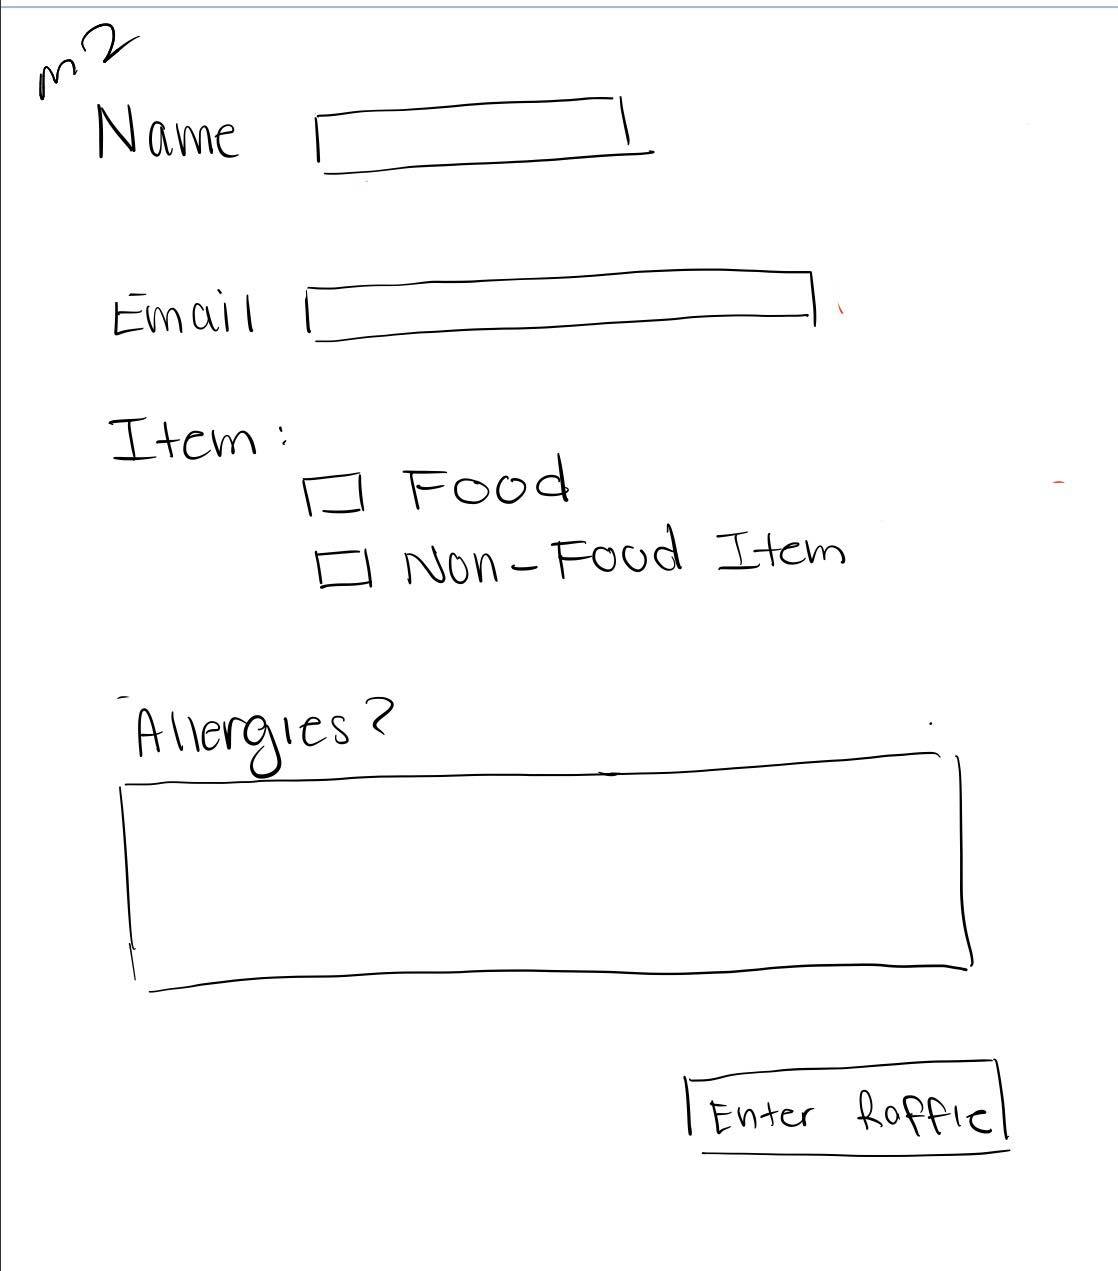 m2
Name
Email
Item:
Food
Non-Food Item
Allergies?
Enter Raffle